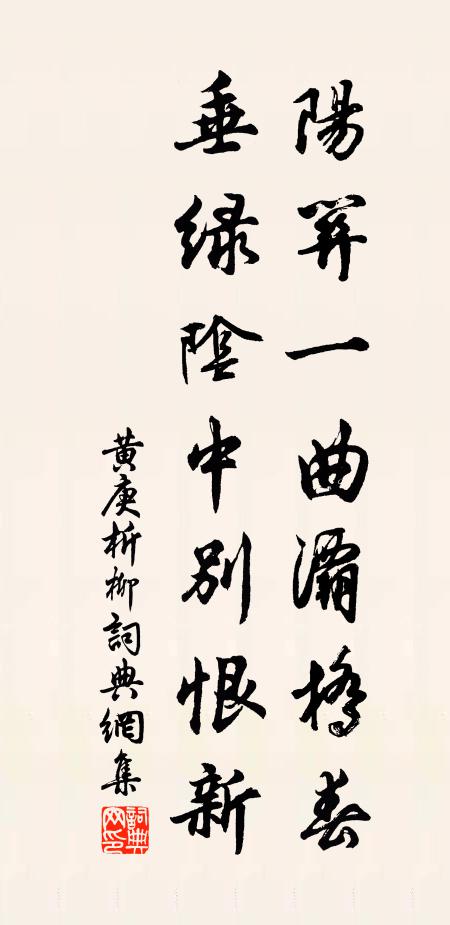 陽関一曲灞橋春
垂綠陰中別恨新
黃庚折柳詞典網集
詞典网印